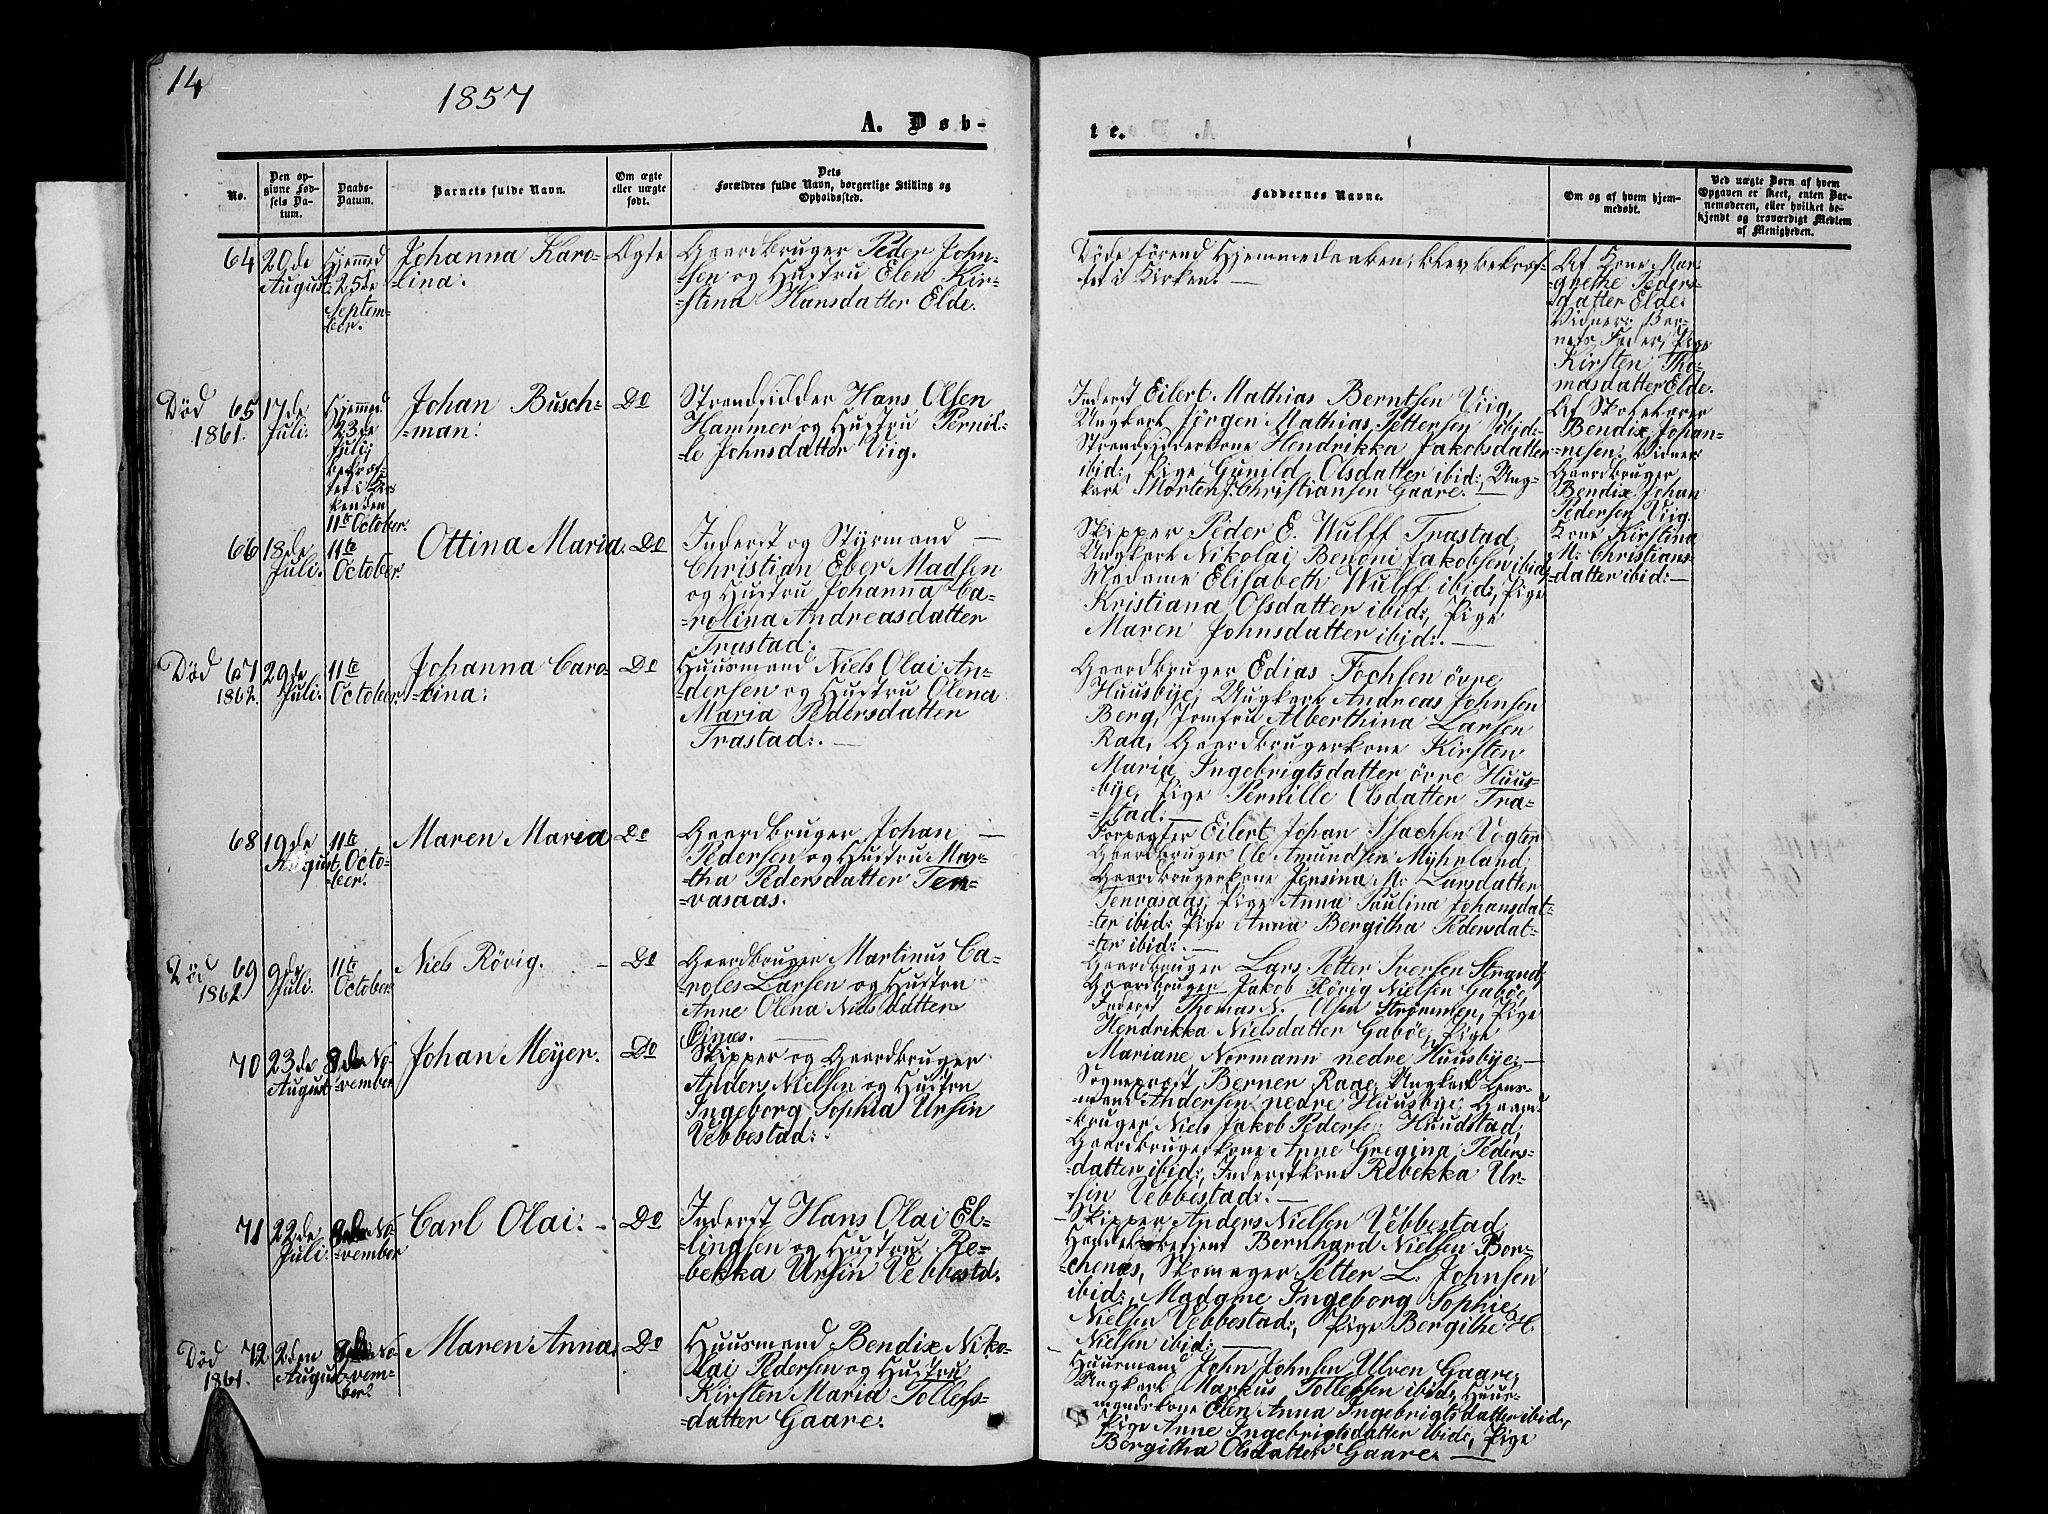 14
1857
A. Døb-
te.
No.
Den op-
givne Fød-
sels Da-
tum.
Daabs-
Datum.
Barnets fulde Navn.
Om ægte
eller uægte
født.
Dets
Forældres fulde Navn, borgerlige Stilling og
Opholdssted.
Faddernes Navne.
Om og af hvem hjem-
medøbt.
Ved uægte Børn af hvem
Opgaven er skeet, enten Bar-
nemoderen, eller hvilket be-
kjendt og troværdigt Medlem
af Menigheden.
64
20de
August
Hjemmed
25de
Septem-
ber.
Johanna Karo-
-lina.
Ægte
Gaardbruger Peder John-
-sen og Hustru Elen Kir-
-stina Hansdatter Elde.
Døde førend Hjemmedaaben blev bekræf-
tet i Kirken. —
Af Kone Mar-
-grethe Peders-
-datter Elde.
Vidner: Bar-
nets Fader, Pige
Kirsten Tho-
masdatter Elde.
Død
1861.
65
17de
Juli.
Hjemmed
23de
Julij
bekræf-
tet i Kir-
ken den
11te October.
Johan Busch-
-man.
Do
Strandsidder Hans Olsen
Hammer og Hustru Pernil-
-le Johnsdatter Viig.
Inderst Eilert Mathias Berntsen Viig,
Ungkarl Jörgen Mathias Pettersen ibid:
Strandsidderkone Hendrikka Jakobsdatter
ibid:, Pige Gunild Olsdatter ibid:, Ung-
karl Morten Christiansen Gaare. —
Af Skolelærer
Bendix Johan-
-nesen. Vidner:
Gaardbruger
Bendix Johan
Pedersen Viig.
Kone Kirstina
M. Christians-
-datter ibid: —
66
18de
Juli.
11te
October.
Ottina Maria.
Do
Inderst og Styrmand —
Christian Eber Madsen
og Hustru Johanna Ca-
-rolina Andreasdatter
Trastad.
Skipper Peder E. Wulff Trastad,
Ungkarl Nikolai Benoni Jakobsen ibid:
Madame Elisabeth Wulff ibid:, Pige
Kristiana Olsdatter ibid:, Pige
Maren Johnsdatter ibid:. —
Død
1862.
67
29de
Juli.
11te
October.
Johanna Caro-
-lina.
Do
Huusmand Niels Olai An-
-dersen og Hustru Olena
Maria Pedersdatter
Trastad:. —
Gaardbruger Edias Fochsen övre
Huusbye, Ungkarl Andreas Johnsen
Berg, Jomfru Alberthina Larsen
Raa, Gaardbrugerkone Kirsten
Maria Ingebrigtsdatter övre Huus-
-bye, Pige Pernille Olsdatter Tra-
-stad:. —
68
19de
August
11te
Octo-
-ber.
Maren Maria
Do
Gaardbruger Johan —
Pedersen og Hustru Mar-
-tha Pedersdatter Ten-
-vasaas.
Forpagter Eilert Johan Isachsen Vogter
Gaardbruger Ole Amundsen Myhrland,
Gaardbrugerkone Jensina M. Larsdatter
Tenvasaas, Pige Anna Paulina Johansdat-
-ter ibid: Pige Anna Bergitha Pedersdat-
-ter ibid:. —
Død
1862
69
9de
Juli.
11te
October.
Niels Rövig. —
Do
Gaardbruger Martinus Ca-
-roles Larsen og Hustru
Anne Olena Nielsdatter
Öinæs. —
Gaardbruger Lars Petter Iversen Strand,
Gaardbruger Jakob Rövig Nielsen Gaböe,
Inderst Thomas N. Olsen Strömmen, Pige
Hendrikka Nielsdatter Gaböe, Pige
Mariane Normann nedre Huusbye. —
70
23de
August
8de No-
-vember
Johan Meyer.
Do
Skipper og Gaardbruger
Anders Nielsen og Hustru
Ingeborg Sophia Ursin
Vebbestad:.
Sogneprest Berner Raae, Ungkarl Lens-
-mand Andersen nedre Huusbye, Gaard-
-bruger Niels Jakob Pedersen Huudstad,
Gaardbrugerkone Anne Gregina Peders-
-datter ibid:, Inderstkone Rebekka Ur-
-sin Vebbestad:. —
71
22de
Juli.
8de No-
-vember
Carl Olai. —
Do
Inderst Hans Olai El-
-lingsen og Hustru Re-
-bekka Ursin Vebbestd.
Skipper Anders Nielsen Vebbestad,
Handelsbetjent Bernhard Nielsen Bor-
-chenæs, Skomager Petter L. Johnsen
ibid:, Madame Ingeborg Sophie
Nielsen Vebbestad:, Pige Bergithe H.
Nielsen ibid:. —
Død
1861.
72
2den
August
8de No-
-vem-
ber.
Maren Anna.
Do
Huusmand Bendix Niko-
-lai Pedersen og Hustru
Kirsten Maria Tollefs-
-datter Gaare.
Huusmand John Johnsen Ulven Gaare,
Ungkarl Markus Tollefsen ibid, Huus-
mandskone Elen Anna Ingebrigtsdatter ibid:,
Pige Anne Ingebrigtsdatter ibid:, Pige
Bergitha Olsdatter Gaare. —